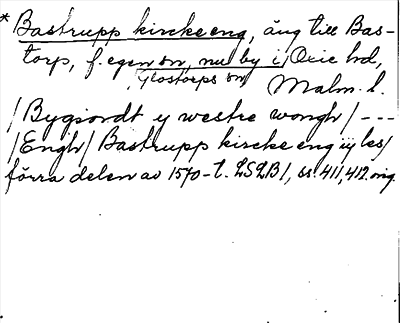 * Bastrupp kircke eng, äng till Bas-
torp, f. egen sn, nu by i Oxie hd,
Glostorps sn Malm. l.
/Bygsiordt y westre wongh/ ---
/Engh/ Bastrupp kircke eng iij les/
förra delen av 1570-t. LSLB1, ss. 411, 412. orig.